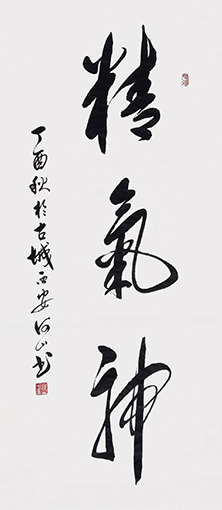 精氣神
丁酉秋於古城西安河山書